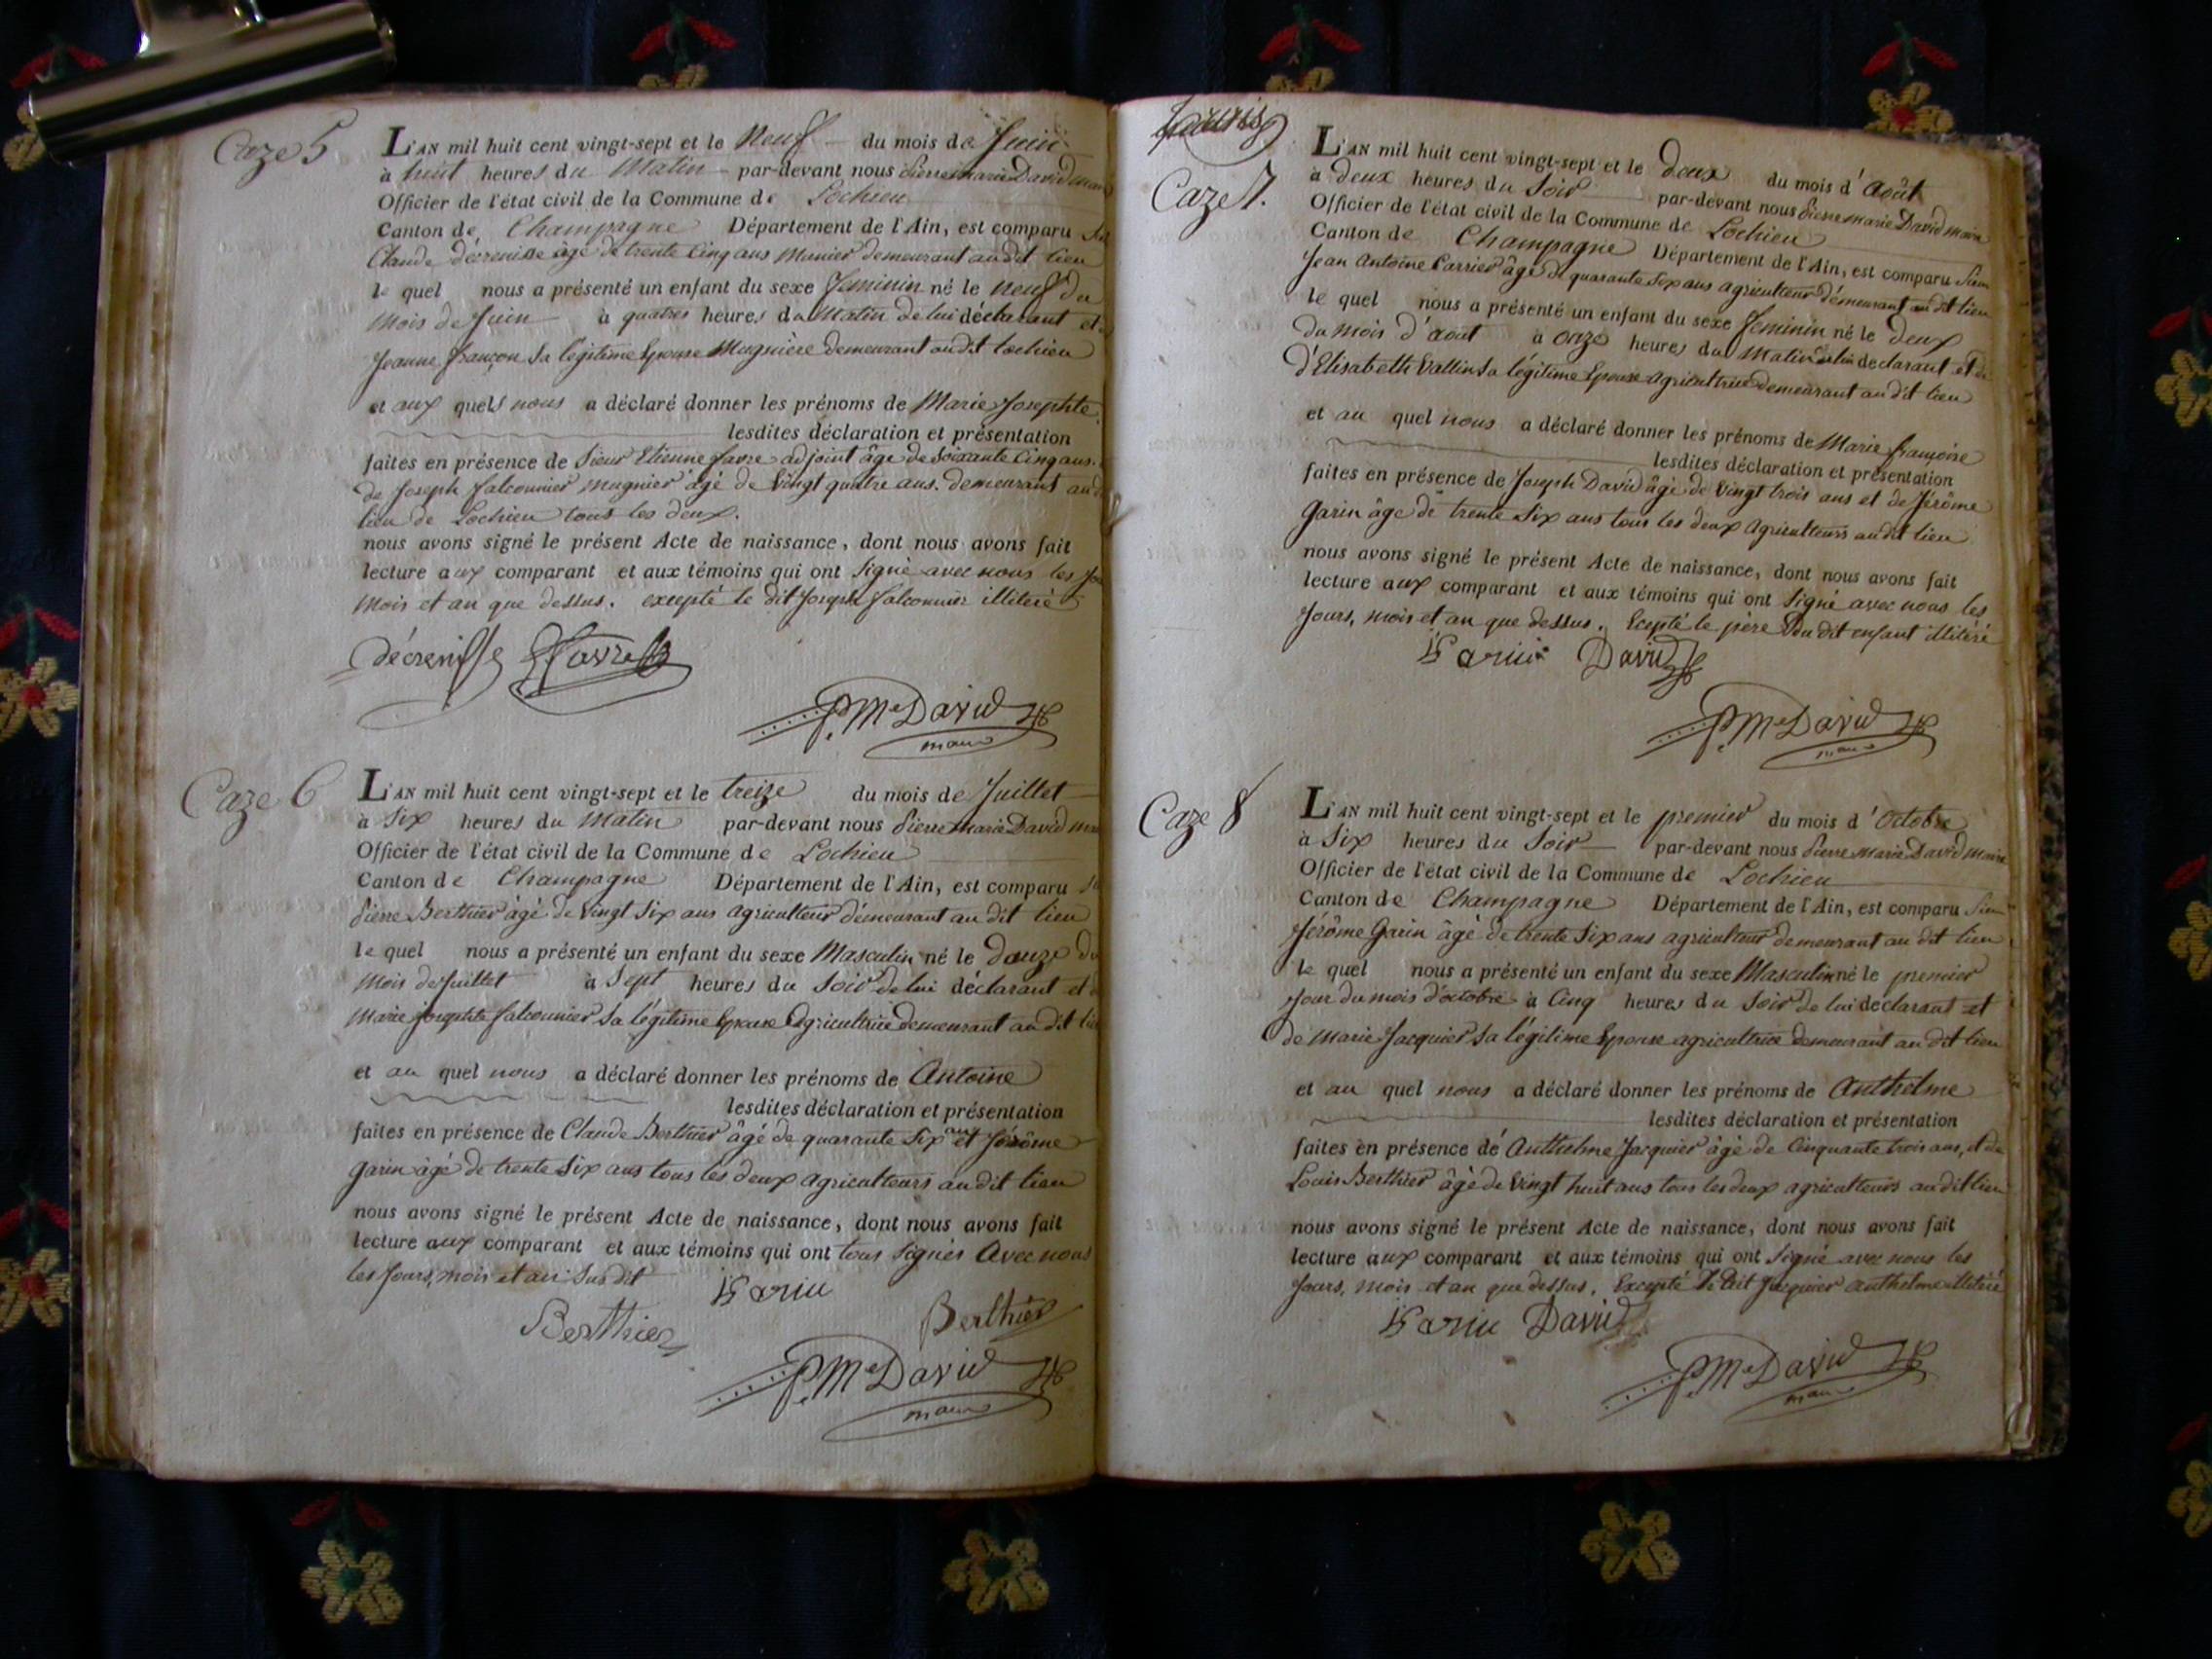 Caze 5
L'AN mil huit cent vingt-sept et le neuf du mois de Juin
à huit heures du Matin par-devant nous Pierre marie David maire
Officier de l'état civil de la Commune de Lochieu
Canton de Champagne Département de l'Ain, est comparu
Claude décrenisse âgé de trente Cinq ans Munier demeurant au dit lieu
le quel nous a présenté un enfant du sexe feminin né le neuf du
Mois de Juin à quatres heures du Matin de lui déclarant et
Jeanne françon sa légitime Epouse Mugnière demeurant au dit lochieu
et aux quels nous a déclaré donner les prénoms de Marie Josephte
lesdites déclaration et présentation
faites en présence de Sieur Etienne favre adjoint âgé de soixante Cinq ans.
de Joseph falconnier mugnier âgé de Vingt quatre ans. demeurant au
lieu de Lochieu tous les deux.
nous avons signé le présent Acte de naissance, dont nous avons fait
lecture aux comparant et aux témoins qui ont signé avec nous les
Mois et an que dessus. excepté le dit Joseph falconnier illiteré
décrenisse Favre
P. Me David
maire
Caze 6
L'AN mil huit cent vingt-sept et le treize du mois de Juillet
à Six heures du Matin par-devant nous Pierre marie David
Officier de l'état civil de la Commune de Lochieu
Canton de Champagne Département de l'Ain, est comparu
Pierre Berthier âgé de vingt Six ans agriculteur démeurant au dit lieu
le quel nous a présenté un enfant du sexe Masculin né le douze du
Mois de Juillet à Sept heures du Soir de lui déclarant et
Marie josephte falconnier sa légitime Epouse Agricultrice demeurant au dit
et au quel nous a déclaré donner les prénoms de Antoine
lesdites déclaration et présentation
faites en présence de Claude Berthier âgé de quarante Six ans et Jérôme
Garin âgé de trente Six ans tous les deux agriculteurs au dit lieu
nous avons signé le présent Acte de naissance, dont nous avons fait
lecture aux comparant et aux témoins qui ont tous signés Avec nous
les Jours, mois et an Susdit
Garin
Berthier Berthier
P. Me David
maire
Caze 7.
L'AN mil huit cent vingt-sept et le deux du mois d'Août
à deux heures du Soir par-devant nous Pierre marie David maire
Officier de l'état civil de la Commune de Lochieu
Canton de Champagne Département de l'Ain, est comparu Sieur
Jean Antoine Carrier âgé de quarante Six ans agriculteur démeurant au dit lieu
le quel nous a présenté un enfant du sexe feminin né le deux
du mois d'août à onze heures du Matin de lui déclarant et de
d'Elisabeth Vallin sa légitime Epouse agricultrice demeurant au dit lieu
et au quel nous a déclaré donner les prénoms de Marie françoise
lesdites déclaration et présentation
faites en présence de Joseph David âgé de Vingt trois ans et de Jérôme
Garin âgé de trente Six ans tous les deux agriculteurs au dit lieu
nous avons signé le présent Acte de naissance, dont nous avons fait
lecture aux comparant et aux témoins qui ont Signé avec nous les
Jours, mois et an que dessus. Ecepté le père du dit enfant illitéré
Garin David
P. Me David
maire
Caze 8
L'AN mil huit cent vingt-sept et le premier du mois d'octobre
à Six heures du Soir par-devant nous Pierre marie David maire
Officier de l'état civil de la Commune de Lochieu
Canton de Champagne Département de l'Ain, est comparu Sieur
Jérôme Garin âgé de trente Six ans agriculteur demeurant au dit lieu
le quel nous a présenté un enfant du sexe Masculin né le premier
Jour du mois d'octobre à Cinq heures du Soir de lui déclarant et
de Marie Jacquier sa légitime Epouse agricultrice demeurant au dit lieu
et au quel nous a déclaré donner les prénoms de Anthelme
lesdites déclaration et présentation
faites en présence de Anthelme Jacquier âgé de Cinquante trois ans, et de
Louis Berthier âgé de Vingt huit ans tous les deux agriculteurs au dit lieu
nous avons signé le présent Acte de naissance, dont nous avons fait
lecture aux comparant et aux témoins qui ont signé avec nous les
Jours, mois et an que dessus. Excepté le dit Jacquier anthelme illitéré
Garin David
P. Me David
maire